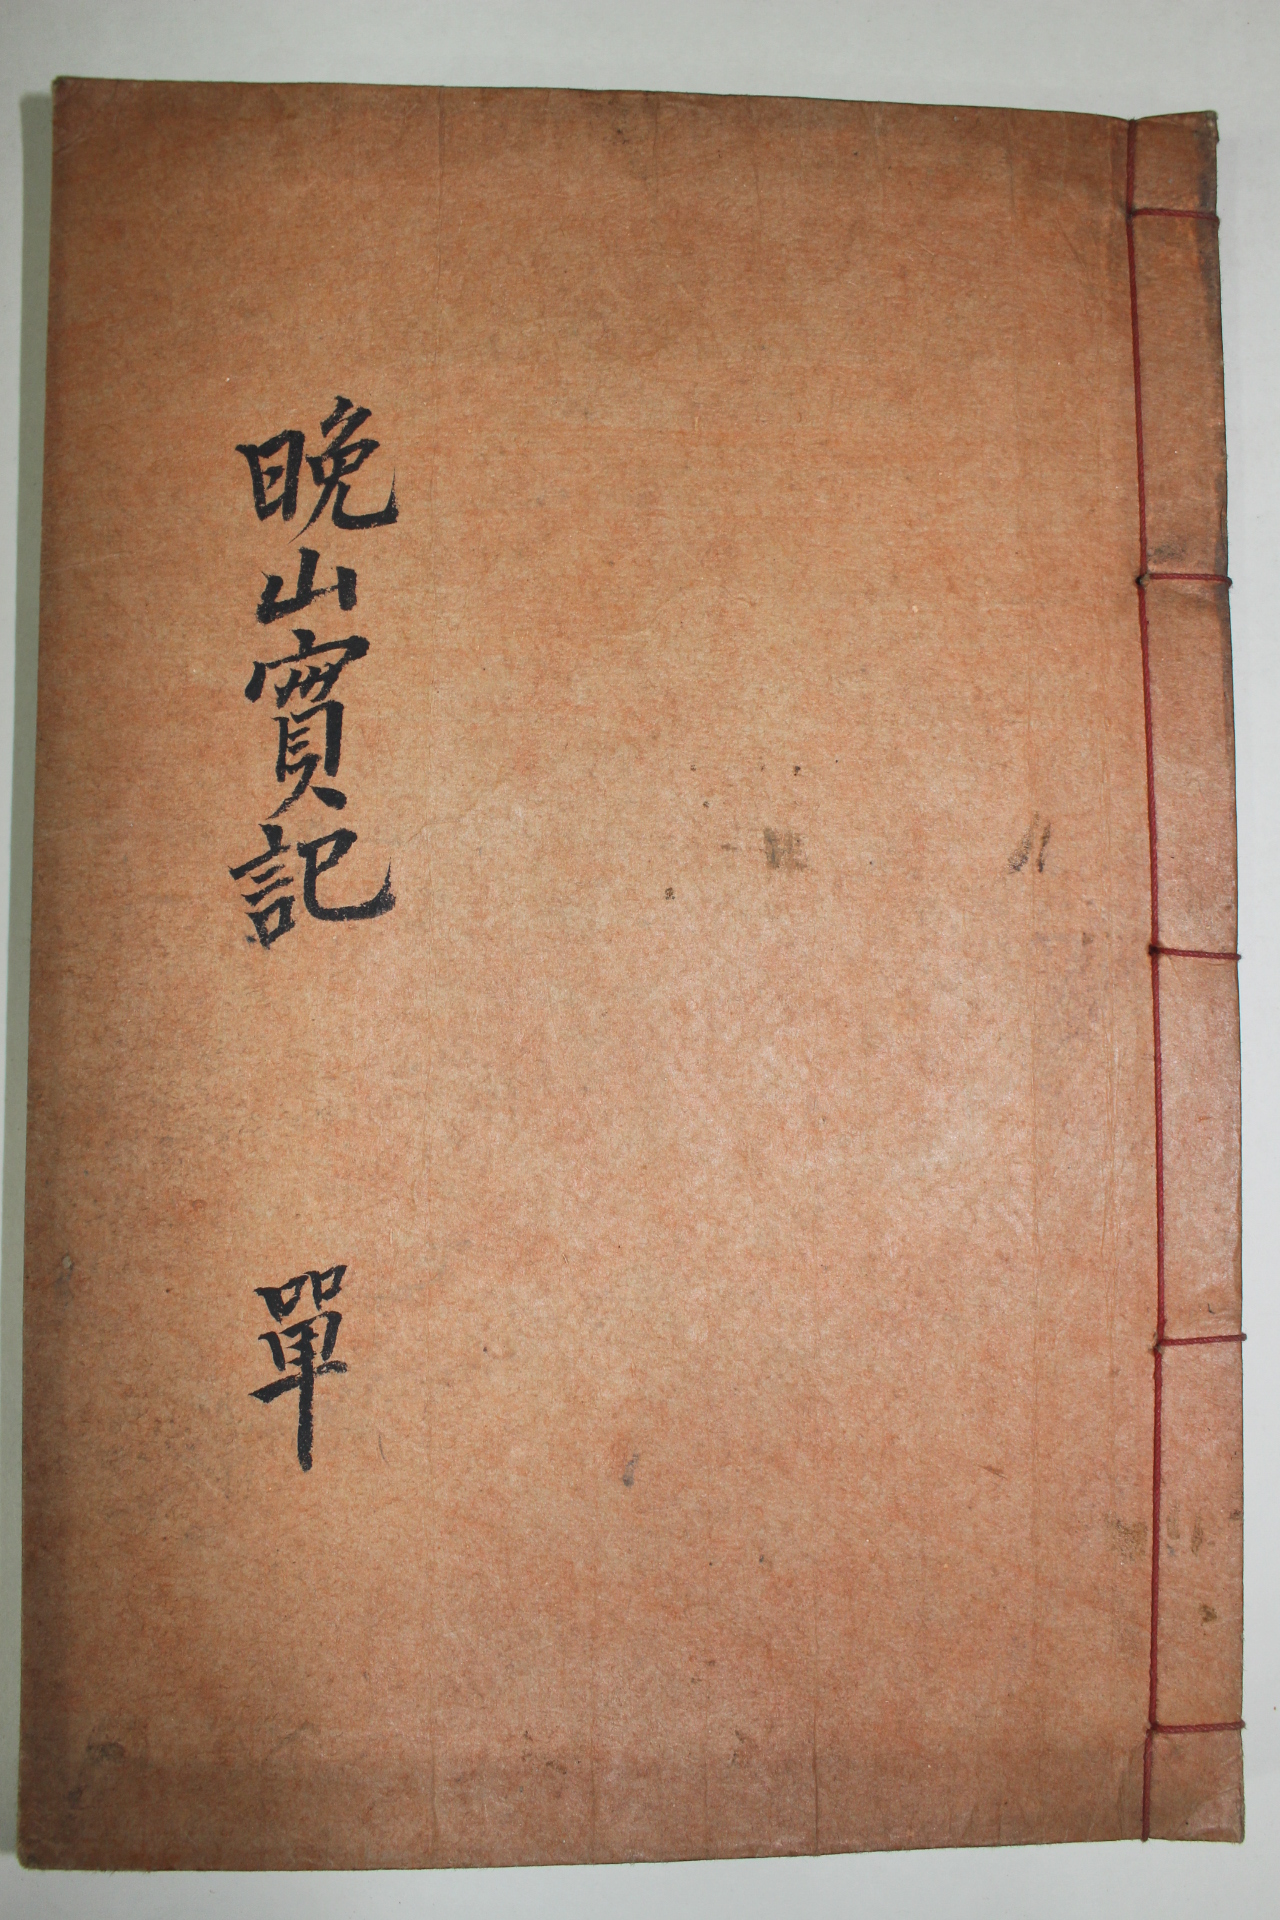 晚山實記
單